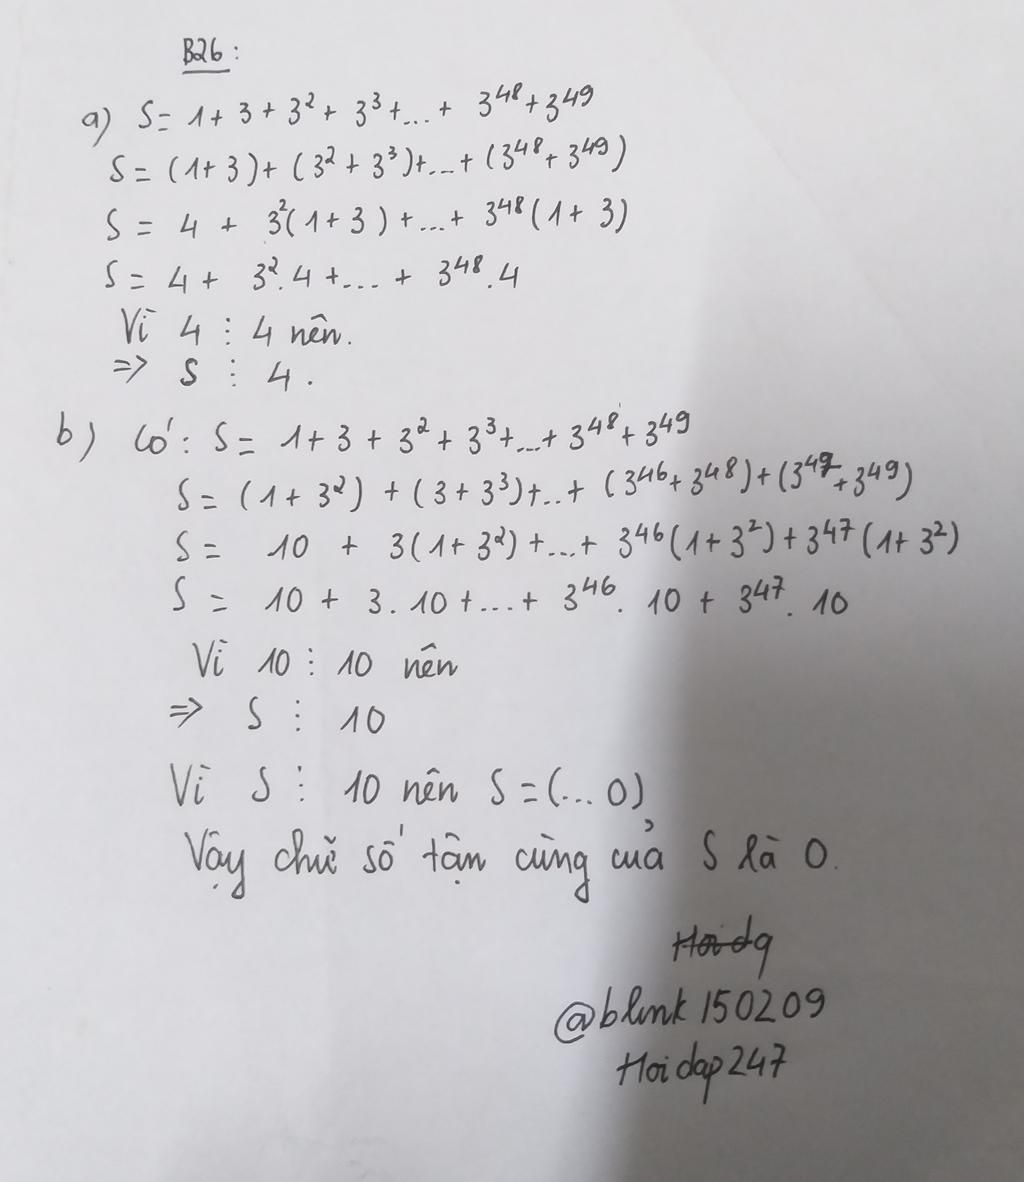 B26:
a) S = 1 + 3 + 3² + 3³ + ... + 3⁴⁸ + 3⁴⁹
S = (1 + 3) + (3² + 3³) + ... + (3⁴⁸ + 3⁴⁹)
S = 4 + 3²(1 + 3) + ... + 3⁴⁸(1 + 3)
S = 4 + 3².4 + ... + 3⁴⁸.4
Vì 4 ⋮ 4 nên.
=> S ⋮ 4.
b) Có: S = 1 + 3 + 3² + 3³ + ... + 3⁴⁸ + 3⁴⁹
S = (1 + 3²) + (3 + 3³) + ... + (3⁴⁶ + 3⁴⁸) + (3⁴⁷ + 3⁴⁹)
S = 10 + 3(1 + 3²) + ... + 3⁴⁶(1 + 3²) + 3⁴⁷(1 + 3²)
S = 10 + 3.10 + ... + 3⁴⁶.10 + 3⁴⁷.10
Vì 10 ⋮ 10 nên
=> S ⋮ 10
Vì S ⋮ 10 nên S = (... 0)
Vậy chữ số tận cùng của S là 0.
@blink150209
Hoidap247